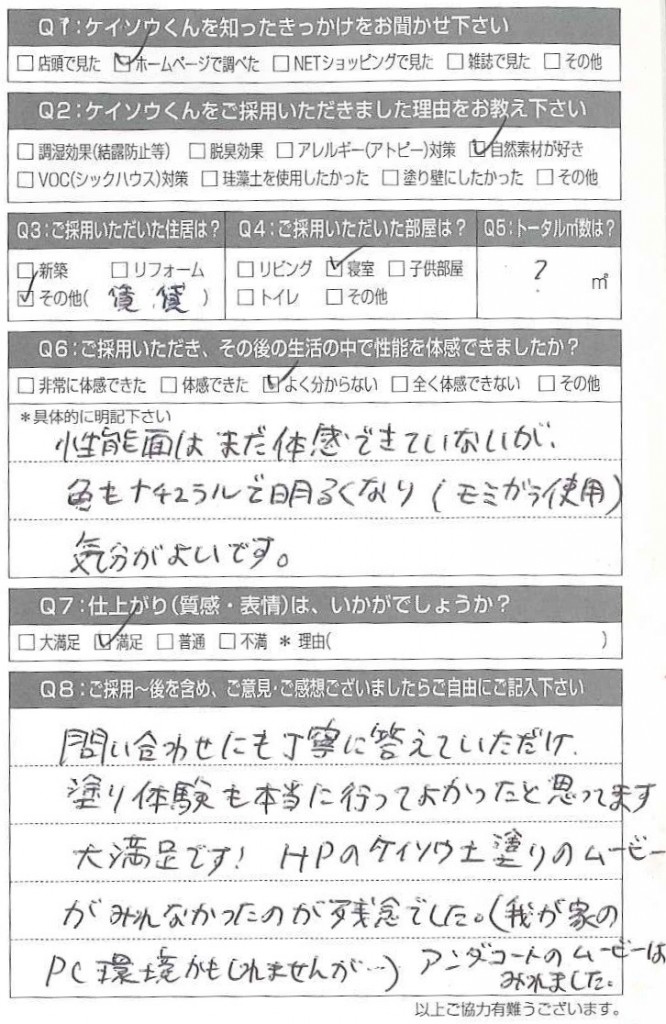 Q1:ケイソウくんを知ったきっかけをお聞かせ下さい
□店頭で見た ☑ホームページで調べた □NETショッピングで見た □雑誌で見た □その他
Q2:ケイソウくんをご採用いただきました理由をお教え下さい
□調湿効果(結露防止等) □脱臭効果 □アレルギー(アトピー)対策 ☑自然素材が好き
□VOC(シックハウス)対策 □珪藻土を使用したかった □塗り壁にしたかった □その他
Q3:ご採用いただいた住居は?
□新築 □リフォーム
☑その他( 賃貸 )
Q4:ご採用いただいた部屋は?
□リビング ☑寝室 □子供部屋
□トイレ □その他
Q5:トータル㎡数は?
? ㎡
Q6:ご採用いただき、その後の生活の中で性能を体感できましたか?
□非常に体感できた □体感できた ☑よく分からない □全く体感できない □その他
*具体的に明記下さい
性能面はまだ体感できていないが、
色もナチュラルで明るくなり(モミガラ使用)
気分がよいです。
Q7:仕上がり(質感・表情)は、いかがでしょうか?
□大満足 ☑満足 □普通 □不満 *理由( )
Q8:ご採用〜後を含め、ご意見・ご感想ございましたらご自由にご記入下さい
問い合わせにも丁寧に答えていただけ、
塗り体験も本当に行ってよかったと思ってます
大満足です! HPのケイソウ土塗りのムービー
がみれなかったのが残念でした。(我が家の
PC環境かもしれませんが…) アンダコートのムービーは
みれました。
以上ご協力有難うございます。